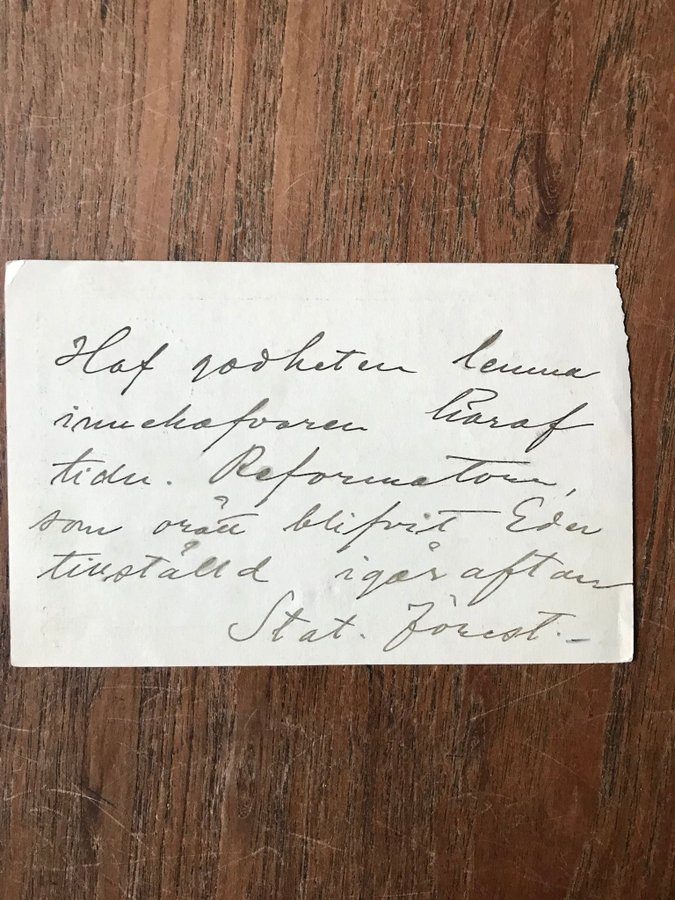 Haf godheten lemna
innehafvaren häraf
tidn. Reformatorn,
som orätt blifvit Eder
tillställd igår aftan
Stat. Förest. –